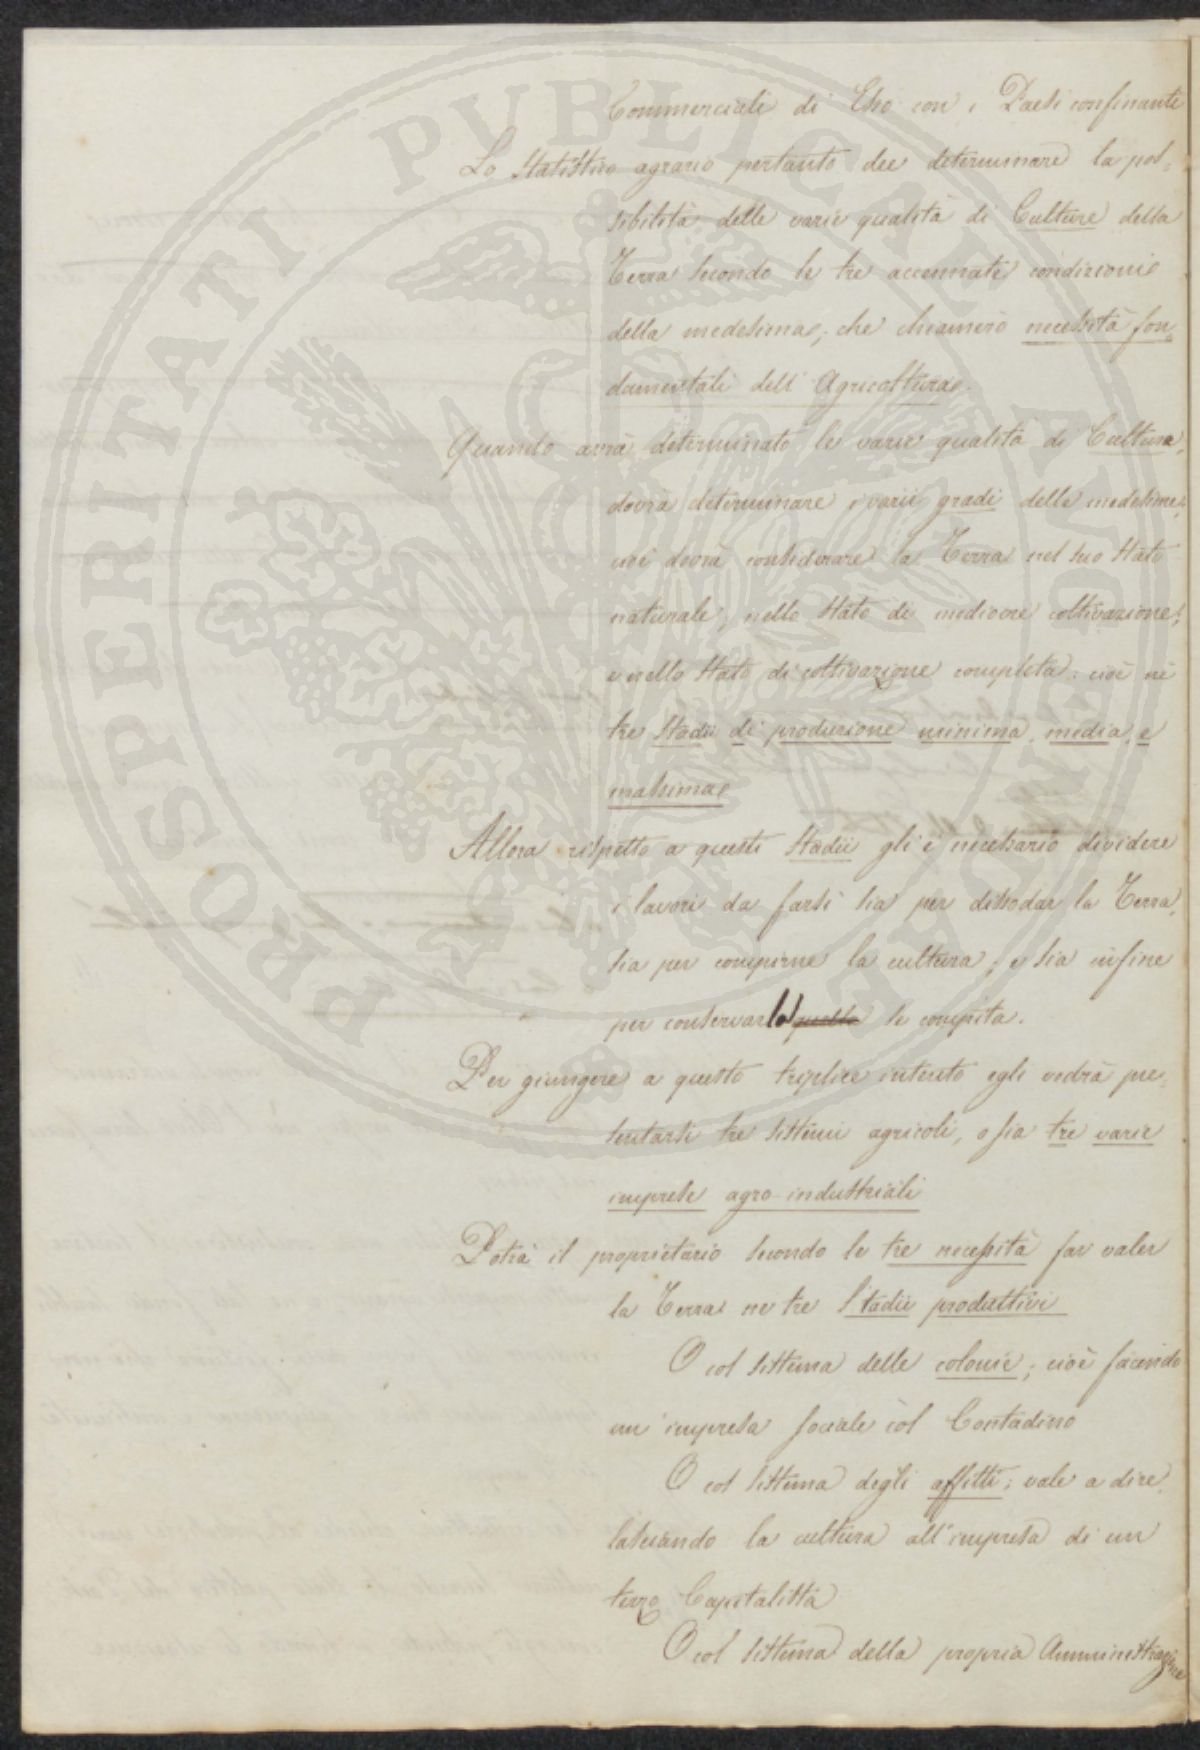 Commerciali di Esso con i Paesi confinanti
Lo Statistico agrario pertanto dee determinare la pos=
sibilità delle varie qualità di Culture della
Terra secondo le tre accennate condizioni
della medesima; che chiamerò necessità fon=
damentali dell'Agricoltura.
Quando avrà determinato le varie qualità di Cultura,
dovrà determinare i varii gradi delle medesime;
cioè dovrà considerare la Terra nel suo stato
naturale; nello stato di mediocre coltivazione;
e nello stato di coltivazione completa: cioè ne
tre Stadii di produzione minima, media, e
massima
Allora rispetto a questi Stadii gli è necessario dividere
i lavori da farsi sia per dissodar la Terra,
sia per compirne la cultura; e sia infine
per conservarla quella se compita.
Per giungere a questo triplice intento egli vedrà pre=
sentarsi tre sistemi agricoli, o sia tre varie
imprese agro-industriali
Potrà il proprietario secondo le tre necessità far valer
la Terra ne tre Stadii produttivi
O col sistema delle colonie; cioè facendo
un'impresa sociale col Contadino
O col sistema degli affitti; vale a dire,
lasciando la cultura all'impresa di un
terzo Capitalista
O col sistema della propria Amministrazione
PROSPERITATI PUBLICAE AUGENDAE